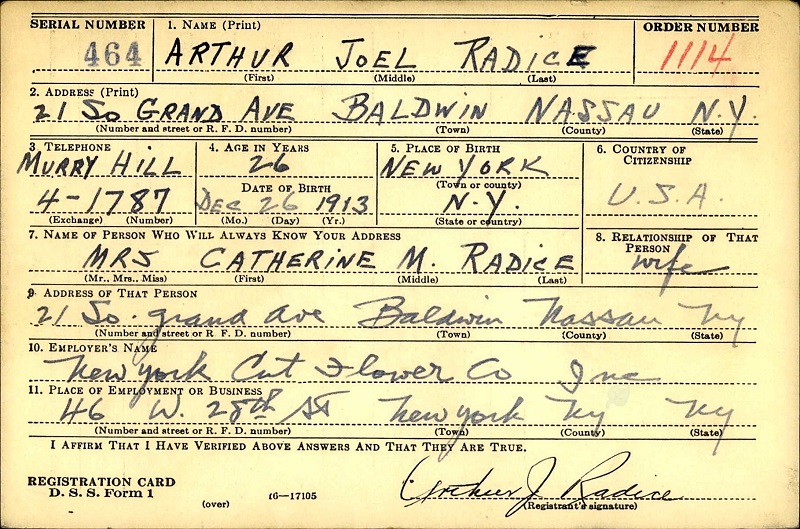 SERIAL NUMBER 1. NAME (Print) ORDER NUMBER
464 ARTHUR JOEL RADICE 1114
(First) (Middle) (Last)
2. ADDRESS (Print)
21 So GRAND AVE BALDWIN NASSAU N.Y.
(Number and street or R. F. D. number) (Town) (County) (State)
3. TELEPHONE 4. AGE IN YEARS 5. PLACE OF BIRTH 6. COUNTRY OF
CITIZENSHIP
MURRY HILL 26 NEW YORK
DATE OF BIRTH (Town or county)
4-1787 DEC 26 1913 N.Y. U.S.A.
(Exchange) (Number) (Mo.) (Day) (Yr.) (State or country)
7. NAME OF PERSON WHO WILL ALWAYS KNOW YOUR ADDRESS 8. RELATIONSHIP OF THAT
PERSON
MRS CATHERINE M. RADICE wife
(Mr., Mrs., Miss) (First) (Middle) (Last)
9. ADDRESS OF THAT PERSON
21 So. grand ave Baldwin Nassau Ny
(Number and street or R. F. D. number) (Town) (County) (State)
10. EMPLOYER'S NAME
New York Cut Flower Co Inc
11. PLACE OF EMPLOYMENT OR BUSINESS
46 W. 28th St New york Ny Ny
(Number and street or R. F. D. number) (Town) (County) (State)
I AFFIRM THAT I HAVE VERIFIED ABOVE ANSWERS AND THAT THEY ARE TRUE.
REGISTRATION CARD
D. S. S. Form 1 (over) 16—17105 Arthur J. Radice
(Registrant's signature)